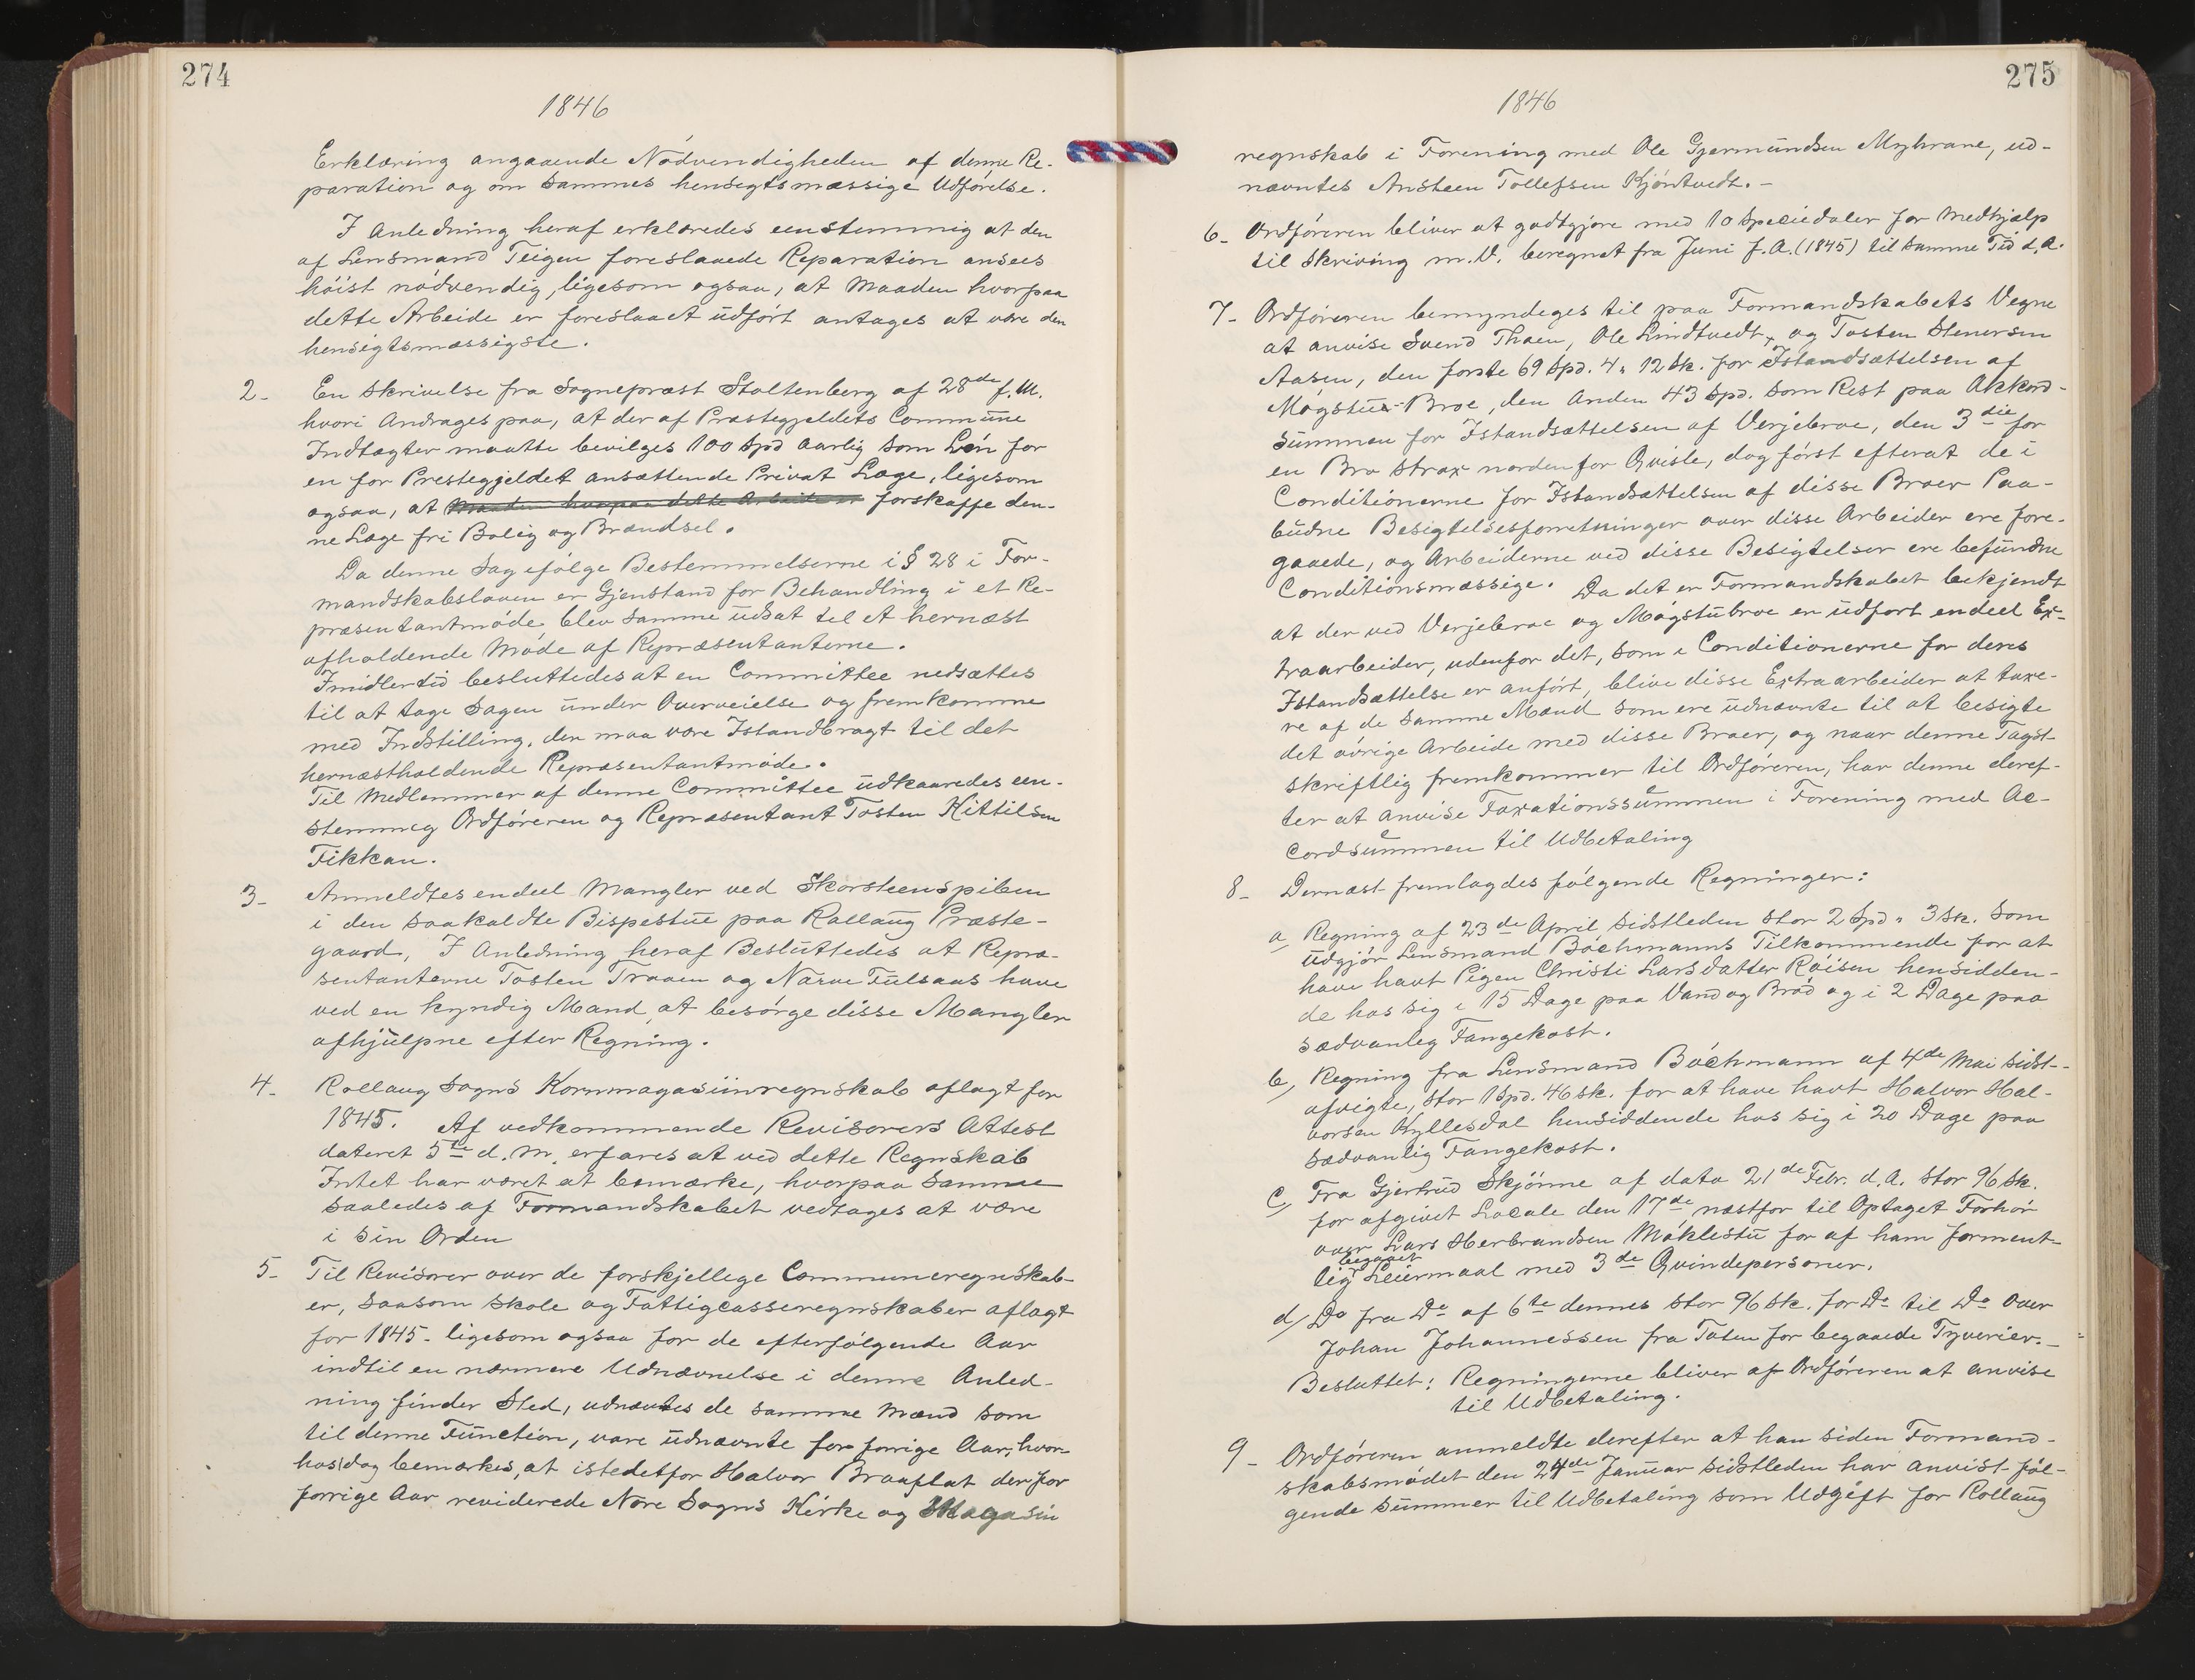 274
1846
Erklæring angaaende Nödvendigheden af denne Re-
paration og om Sammes hensigtsmæssige Udförelse.
I Anledning heraf erklæredes eenstemmig at den
af Lensmand Teigen foreslaaede Reparation ansees
höist nödvendig, ligesom ogsaa, at Maaden hvorpaa
dette Arbeide er foreslaaet udfört antages at være den
hensigtsmæssigste.
2- En Skrivelse fra Sognepræst Stoltenberg af 28de f. M.
hvori Andrages paa, at der af Præstegjeldets Commune
Indtægter maatte bevilges 100 Spd aarlig som Lön for
en for Prestegjeldet ansættende Privat Læge, ligesom
ogsaa, at Maaden hvorpaa dette Arbeide er forskaffe den-
ne Læge fri Bolig og Brændsel.
Da denne Sag efölge Bestemmelserne i § 28 i For-
mandskabsloven er Gjenstand for Behandling i et Re-
præsentantmöde blev Samme udsat til et hernæst
afholdende Möde af Repræsentanterne.
Imidlertid besluttedes at en Committee nedsættes
til at tage Sagen under Overveielse og fremkomme
med Indstilling, den maa være Istandbragt til det
hernæstholdende Repræsentantmöde.
Til Medlemmer af denne Committee udkaaredes een-
stemmig Ordföreren og Repræsentant Tosten Kittilsen
Fikkan.
3- Anmeldtes endeel Mangler ved Skorsteenspiben
i den saakaldte Bispestue paa Rollaug Præste-
gaard, I Anledning heraf Besluttedes at Repræ-
sentanterne Tosten Traaen og Narve Fulsaas have
ved en kyndig Mand at besörge disse Mangler
afhjulpne efter Regning.
4- Rollaug Sogns Kornmagasiinregnskab aflagt for
1845. Af vedkommende Revisorers Attest
dateret 5te d. M. erfares at ved dette Regnskab
Intet har været at bemærke, hvorpaa Samme
saaledes af Formandskabet vedtages at være
i sin Orden
5- Til Revisorer over de forskjellege Communeregnskab-
er, saasom Skole og Fattigcasseregnskaber aflagt
for 1845- ligesom ogsaa for de efterfölgende Aar
indtil en nærmere Udnævnelse i denne Anled-
ning finder Sted, udnævntes de samme Mænd som
til denne Function, vare udnævnte for forrige Aar, hvor-
hos dog bemærkes, at istedetfor Halvor Braaflat der for
forrige Aar reviderede Nore Sogns Kirke og Magasin
275
1846
regnskab i Forening med Ole Gjermundsen Myhrane, ud-
nævntes Ansteen Tollefsen Kjöntvedt.-
6- Ordföreren bliver at godtgjöre med 10 Speciedaler for Medhjælp
til Skriving m. V. beregnet fra Juni f. A. (1845) til samme Tid d. A.
7- Ordföreren bemyndeges til paa Formandskabets Vegne
at anvise Svend Thoen, Ole Lindtvedt, og Tosten Stenersen
Aasen, den forste 69 Spd. 4 " 12 Sk. for Istandsættelsen af
Mögstue-Broe, den Anden 43 Spd. som Rest paa Akkord-
Summen for Istandsættelsen af Verjebroe, den 3die for
en Bro strax nordenfor Qvisle, dog först efterat de i
Conditionerne for Istandsættelsen af disse Broer Paa-
budne Besigtelsesforretninger over disse Arbeider ere fore-
gaaede, og Arbeiderne ved disse Besigtelser ere befundne
Conditionsmæssige. Da det er Formandskabet bekjendt
at der ved Verjebroe og Mögstubroe er udfort endeel Ex-
traarbeider, udenfor det, som i Conditionerne for deres
Istandsættelse er anfört, blive disse Extraarbeider at taxe-
re af de samme Mænd som ere udnævnte til at besigte
det övrige Arbeide med disse Broer, og naar denne Taxst
skriftlig fremkommer til Ordföreren, har denne deref-
ter at anvise Taxationssummen i Forening med Ac-
cordsummen til Udbetaling
8- Dernæst fremlagdes fölgende Regninger:
a/ Regning af 23de April sidstleden stor 2 Spd " 3 Sk. som
udgjör Lensmand Bächmanns Tilkommende for at
have havt Pigen Christi Larsdatter Röisen hensidden-
de hos sig i 15 Dage paa Vand og Bröd og i 2 Dage paa
sædvanleg Fangekost.
b/ Regning fra Lensmand Bächmann af 4de Mai sidst-
afvigte, stor 1 Spd. 46 Sk. for at have havt Halvor Hal-
vorsen Hyllesdal hensiddende hos sig i 20 Dage paa
sædvanlig Fangekost.
c/ Fra Gjertrud Skjönne af dato 21de Febr. d. A. stor 96 Sk.
for afgivet Locale den 17de næstfor til Optaget Forhör
over Lars Herbrandsen Möklestu for af ham forment-
begaaet
lig Leiermaal med 3de Qvindepersoner.
d/ Do fra Do af 6te dennes stor 96 Sk. for Do til Do over
Johan Johannessen fra Toten for begaaede Tyverier.-
Besluttet: Regningerne bliver af Ordföreren at anvise
til Udbetaling.
9- Ordföreren anmeldte derefter at han siden Formand-
skabsmödet den 24de Januar sidstleden har anvist föl-
gende Summer til Udbetaling som Udgift for Rollaug